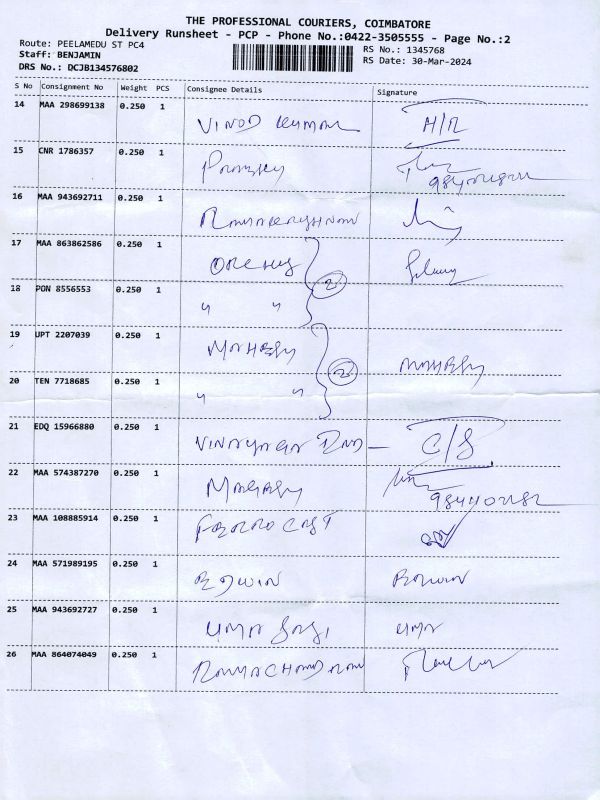 THE PROFESSIONAL COURIERS, COIMBATORE
Delivery Runsheet - PCP - Phone No.:0422-3505555 - Page No.:2
Route: PEELAMEDU ST PC4
Staff: BENJAMIN
DRS No.: DCJB134576802
RS No.: 1345768
RS Date: 30-Mar-2024
S No Consignment No Weight PCS Consignee Details Signature
14 MAA 298699138 0.250 1 VINOD Kumar H/R
15 CNR 1786357 0.250 1
16 MAA 943692711 0.250 1
17 MAA 863862586 0.250 1 2
18 PON 8556553 0.250 1 〃 〃
19 UPT 2207039 0.250 1 MAHESH 2 MAHESH
20 TEN 7718685 0.250 1 〃 〃
21 EDQ 15966880 0.250 1 C/S
22 MAA 574387270 0.250 1
23 MAA 108885914 0.250 1
24 MAA 571989195 0.250 1 EDWIN EDWIN
25 MAA 943692727 0.250 1
26 MAA 864074049 0.250 1 RAMACHANDRAN